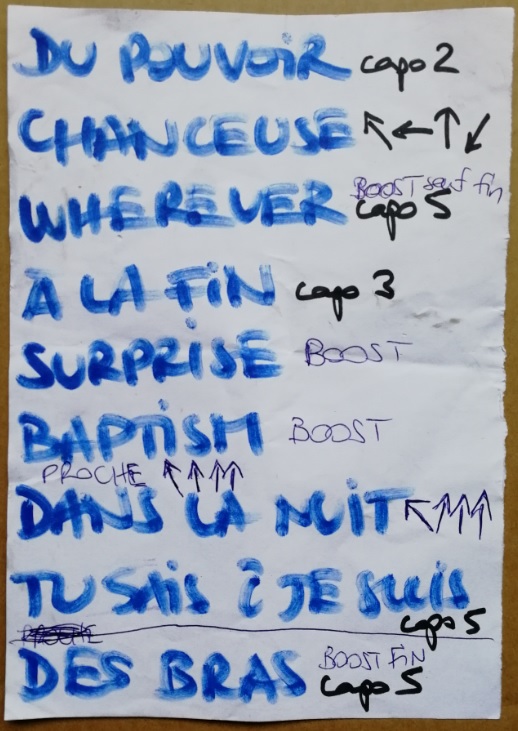 DU POUVOIR capo 2
CHANCEUSE ↖ ← ↑ ↙
BOOST sauf fin
WHEREVER capo 5
À LA FIN capo 3
SURPRISE BOOST
BAPTISM BOOST
PROCHE ↖ ↑ ↑ ↑ ↑
DANS LA NUIT ↖ ↑ ↑ ↑
TU SAIS Ô JE SUIS
capo 5
BOOST FIN
DES BRAS capo 5